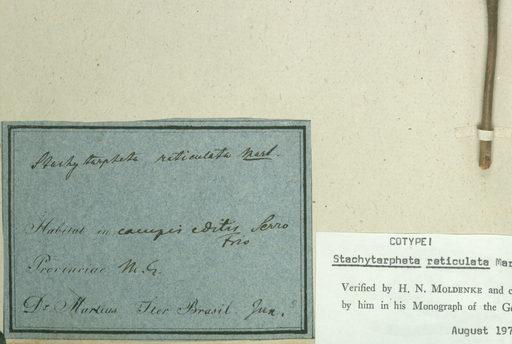 Stachytarpheta reticulata Mart.
Habitat in campis editis Serro
Frio
Provinciae M. G.
Dr. Martius Iter Brasil. Jun.
COTYPE!
Stachytarpheta reticulata Mar
Verified by H. N. MOLDENKE and c
by him in his Monograph of the Ge
August 197